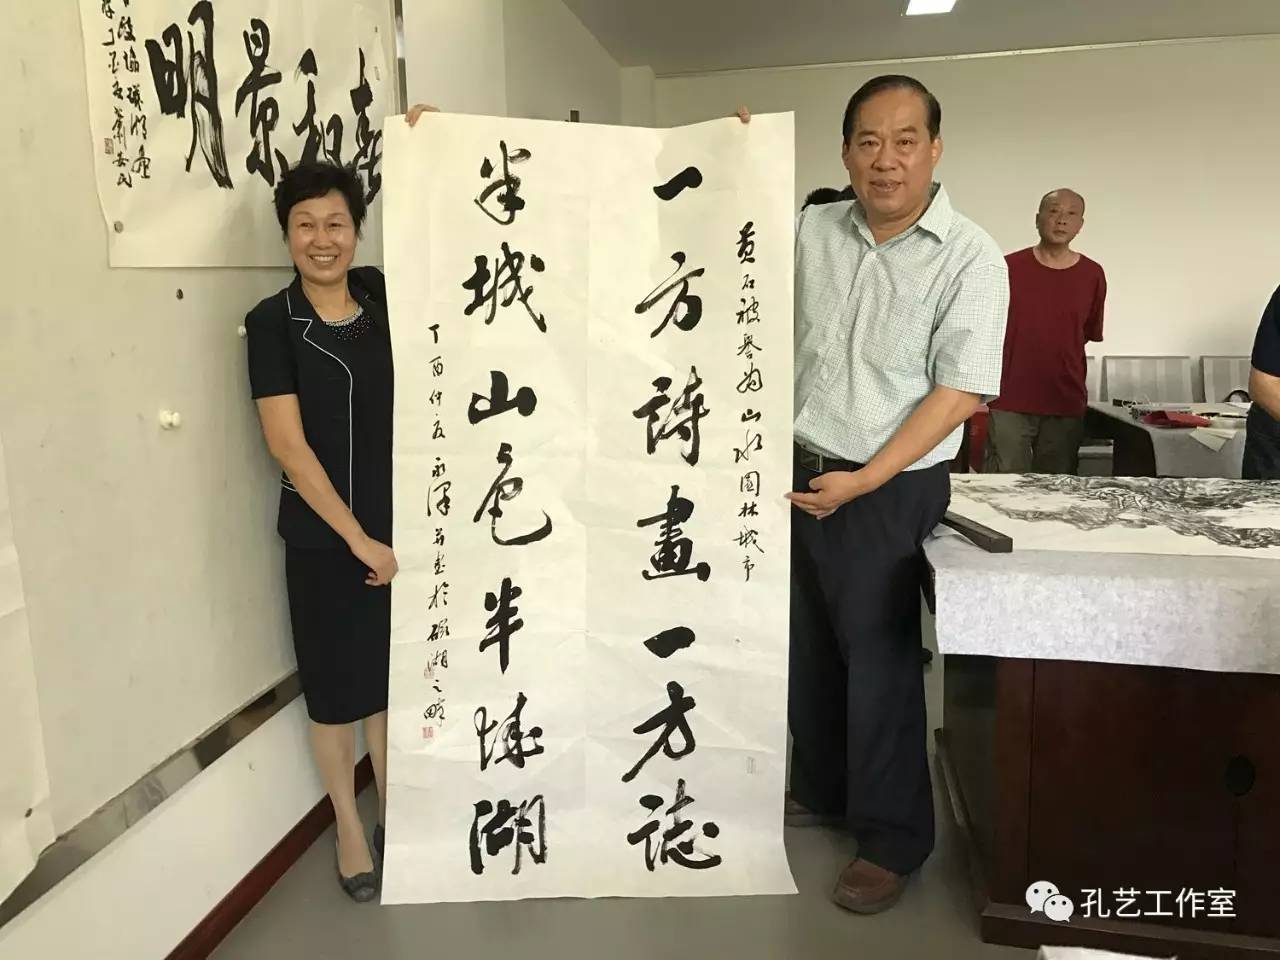 黄石被誉为山水园林城市
一方詩畫一方誌
半城山色半城湖
丁酉仲夏永泽并书於磁湖之畔
春和景明
孔艺工作室